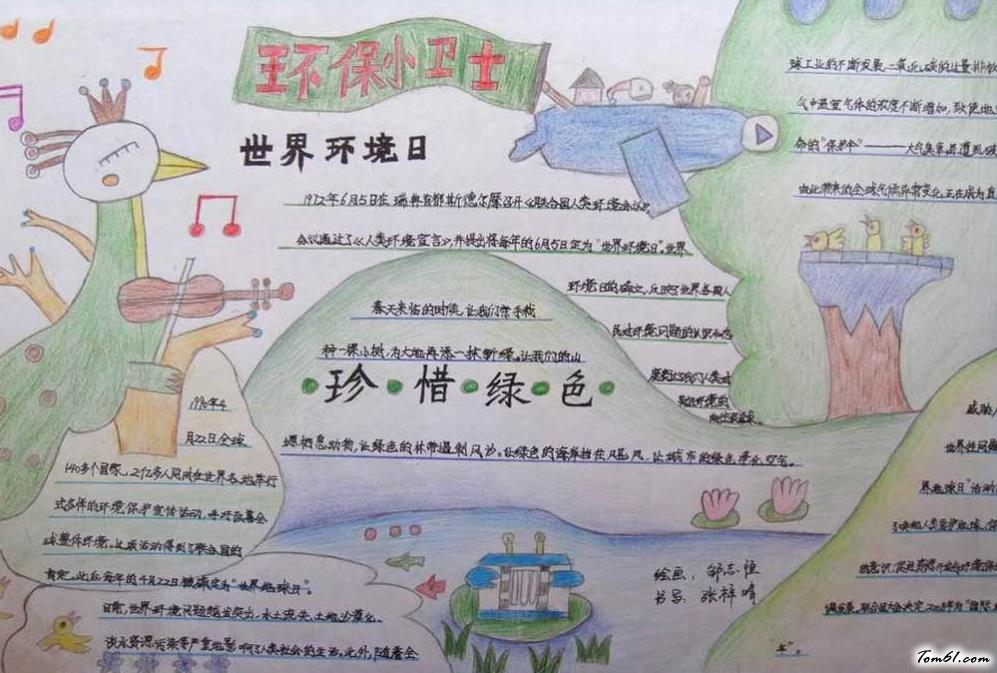 环保小卫士
世界环境日
1972年6月5日在瑞典首都斯德尔摩召开《联合国人类环境会议》
会议通过了《人类环境宣言》,并提出将每年的6月5日定为"世界环境日"。世界
环境日的确立,反映了世界各国人
民对环境问题的认识和态
春天来临的时候,让我们携手栽
种一棵小树,为大地再添一抹新绿。让我们的山
珍·惜·绿·色
息动物,让绿色的林带遏制风沙。让绿色的海岸挡住风,让城市的绿色净化空气。
1990年4
月22日全球
140多个国家、2亿多人同时在世界各地举行
式多样的环境保护宣传活动,呼吁改善全
球整体环境。此项活动得到了联合国的
肯定。此后,每年的4月22日被确定为"世界地球日"。
目前,世界环境问题越来突出,水土流失、土地沙漠化、
淡水资源污染等严重地影响了人类社会的生活。此外,随着全
球工业的不断发展,二氧化碳的过量排放
气中温室气体的浓度不断增加,致使地
命的"保护伞"————大气臭氧层遭到破
由此带来的全球气候异常变化,正在成为直
威胁,
世界性问题
界地球日"活动
了唤起人类爱护地球、保
的意识,促进资源开发与环境保
调发展,联合国大会决定2008年为"国际
年"。
绘画:邹志恒
书写:张梓晴
Tom61.com